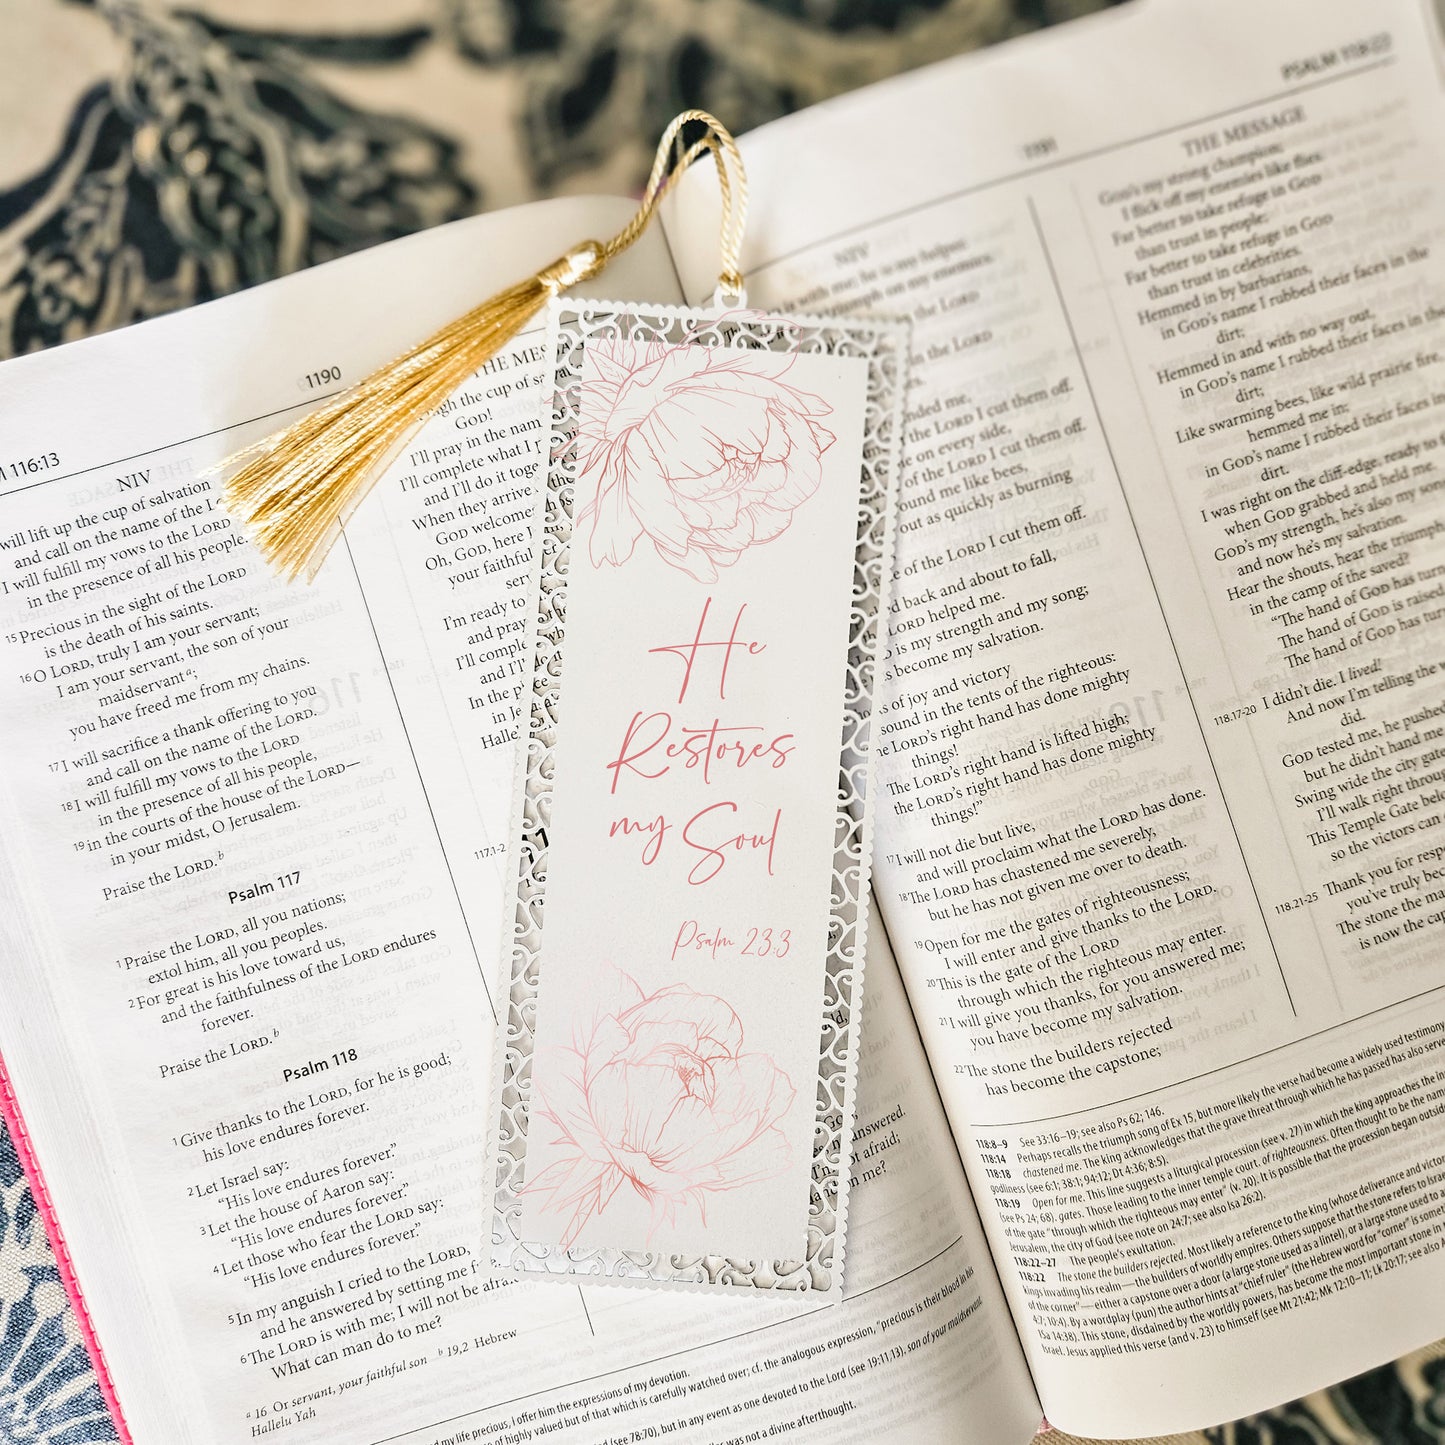 He
Restores
my Soul
Psalm 23:3
1190
M 116:13
NIV
will lift up the cup of salvation
and call on the name of the
I will fulfill my vows to the LORD
in the presence of all his people.
15 Precious in the sight of the LORD
is the death of his saints.
16 O LORD, truly I am your servant;
I am your servant, the son of your
maidservant a;
you have freed me from my chains.
17 I will sacrifice a thank offering to you
and call on the name of the LORD.
18 I will fulfill my vows to the LORD
in the presence of all his people,
19 in the courts of the house of the LORD—
in your midst, O Jerusalem.
Praise the LORD. b
Psalm 117
1 Praise the LORD, all you nations;
extol him, all you peoples.
2 For great is his love toward us,
and the faithfulness of the LORD endures
forever.
Praise the LORD. b
Psalm 118
1 Give thanks to the LORD, for he is good;
his love endures forever.
2 Let Israel say:
"His love endures forever."
3 Let the house of Aaron say:
"His love endures forever."
4 Let those who fear the LORD say:
"His love endures forever."
5 In my anguish I cried to the LORD,
and he answered by setting me
6 The LORD is with me; I will not be
What can man do to me?
a 16 Or servant, your faithful son b 19,2 Hebrew
Hallelu Yah
the cup of
GOD!
I'll pray in the name
I'll complete what I
and I'll do it
When they arrive
GOD welcomes
Oh, GOD, here I
your faithful
I'm ready to
and pray
I'll complete
and I'll
In the
in
117.1-2
my life precious; I offer him the expressions of my devotion.
of highly valued but of that which is carefully watched over; cf. the analogous expression, "precious is their blood in his
(see 78:70), but in any event as one devoted to the Lord (see 19:11,13). son of your maidservant.
was not a divine afterthought.
1191
PSALM 118:22
NIV
is with me; he is my helper.
triumph on my enemies.
the LORD
in the LORD
me,
the LORD I cut them off.
on every side,
of the LORD I cut them off.
me like bees,
out as quickly as burning
of the LORD I cut them off.
back and about to fall,
LORD helped me.
is my strength and my song;
become my salvation.
of joy and victory
sound in the tents of the righteous:
LORD's right hand has done mighty
things!
The LORD's right hand is lifted high;
the LORD's right hand has done mighty
things!"
17 I will not die but live,
and will proclaim what the LORD has done.
18 The LORD has chastened me severely,
but he has not given me over to death.
19 Open for me the gates of righteousness;
I will enter and give thanks to the LORD.
20 This is the gate of the LORD
through which the righteous may enter.
21 I will give you thanks, for you answered me;
you have become my salvation.
22 The stone the builders rejected
has become the capstone;
THE MESSAGE
GOD's my strong champion;
I flick off my enemies like flies.
Far better to take refuge in GOD
than trust in people;
Far better to take refuge in GOD
than trust in celebrities.
Hemmed in by barbarians,
in GOD's name I rubbed their faces in the
dirt;
Hemmed in and with no way out,
in GOD's name I rubbed their faces in the
dirt;
Like swarming bees, like wild prairie fire,
hemmed me in;
in GOD's name I rubbed their faces in
dirt.
I was right on the cliff-edge, ready to
when GOD grabbed and held me.
GOD's my strength, he's also my song,
and now he's my salvation.
Hear the shouts, hear the triumph
in the camp of the saved?
"The hand of GOD has turned
The hand of GOD is raised
The hand of GOD has turned
118.17-20 I didn't die. I lived!
And now I'm telling the
did.
GOD tested me, he pushed
but he didn't hand me
Swing wide the city gates
I'll walk right through
This Temple Gate
so the victors can
118.21-25 Thank you for
you've truly
The stone the
is now the
118:8–9 See 33:16–19; see also Ps 62; 146.
118:14 Perhaps recalls the triumph song of Ex 15, but more likely the verse had become a widely used testimony
118:18 chastened me. The king acknowledges that the grave threat through which he has passed has also
godliness (see 6:1; 38:1; 94:12; Dt 4:36; 8:5).
118:19 Open for me. This line suggests a liturgical procession (see v. 27) in which the king approaches the
(see Ps 24; 68). gates. Those leading to the inner temple court. of righteousness. Often thought to be the
of the gate "through which the righteous may enter" (v. 20). It is possible that the procession began outside
Jerusalem, the city of God (see note on 24:7; see also Isa 26:2).
118:22–27 The people's exultation.
118:22 The stone the builders rejected. Most likely a reference to the king (whose deliverance and
kings invading his realm—the builders of worldly empires. Others suppose that the stone refers to
of the corner"—either a capstone over a door (a large stone used as a lintel), or a large stone used to
4:7; 10:4). By a wordplay (pun) the author hints at "chief ruler" (the Hebrew word for "corner" is
Isa 14:38). This stone, disdained by the worldly powers, has become the most important stone
Israel. Jesus applied this verse (and v. 23) to himself (see Mt 21:42; Mk 12:10–11; Lk 20:17; see also